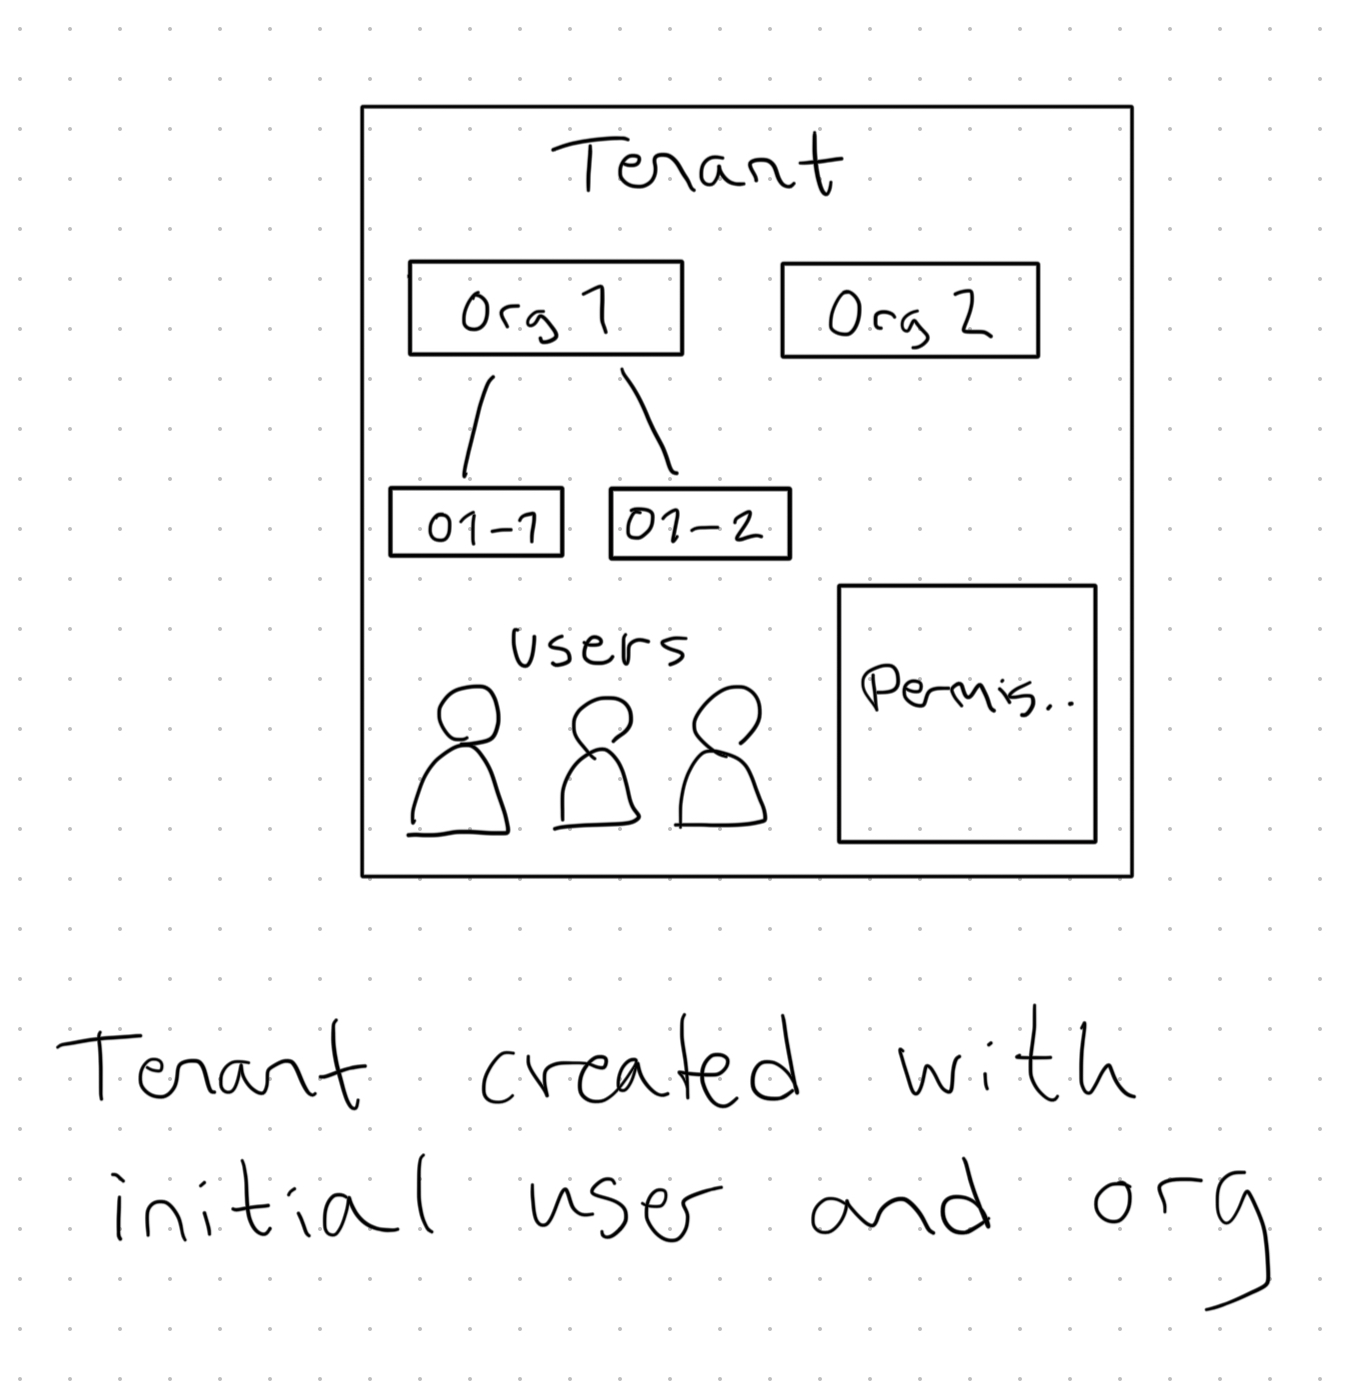 Tenant
Org 1
Org 2
O1-1
O1-2
users
Permis..
Tenant created with
initial user and org